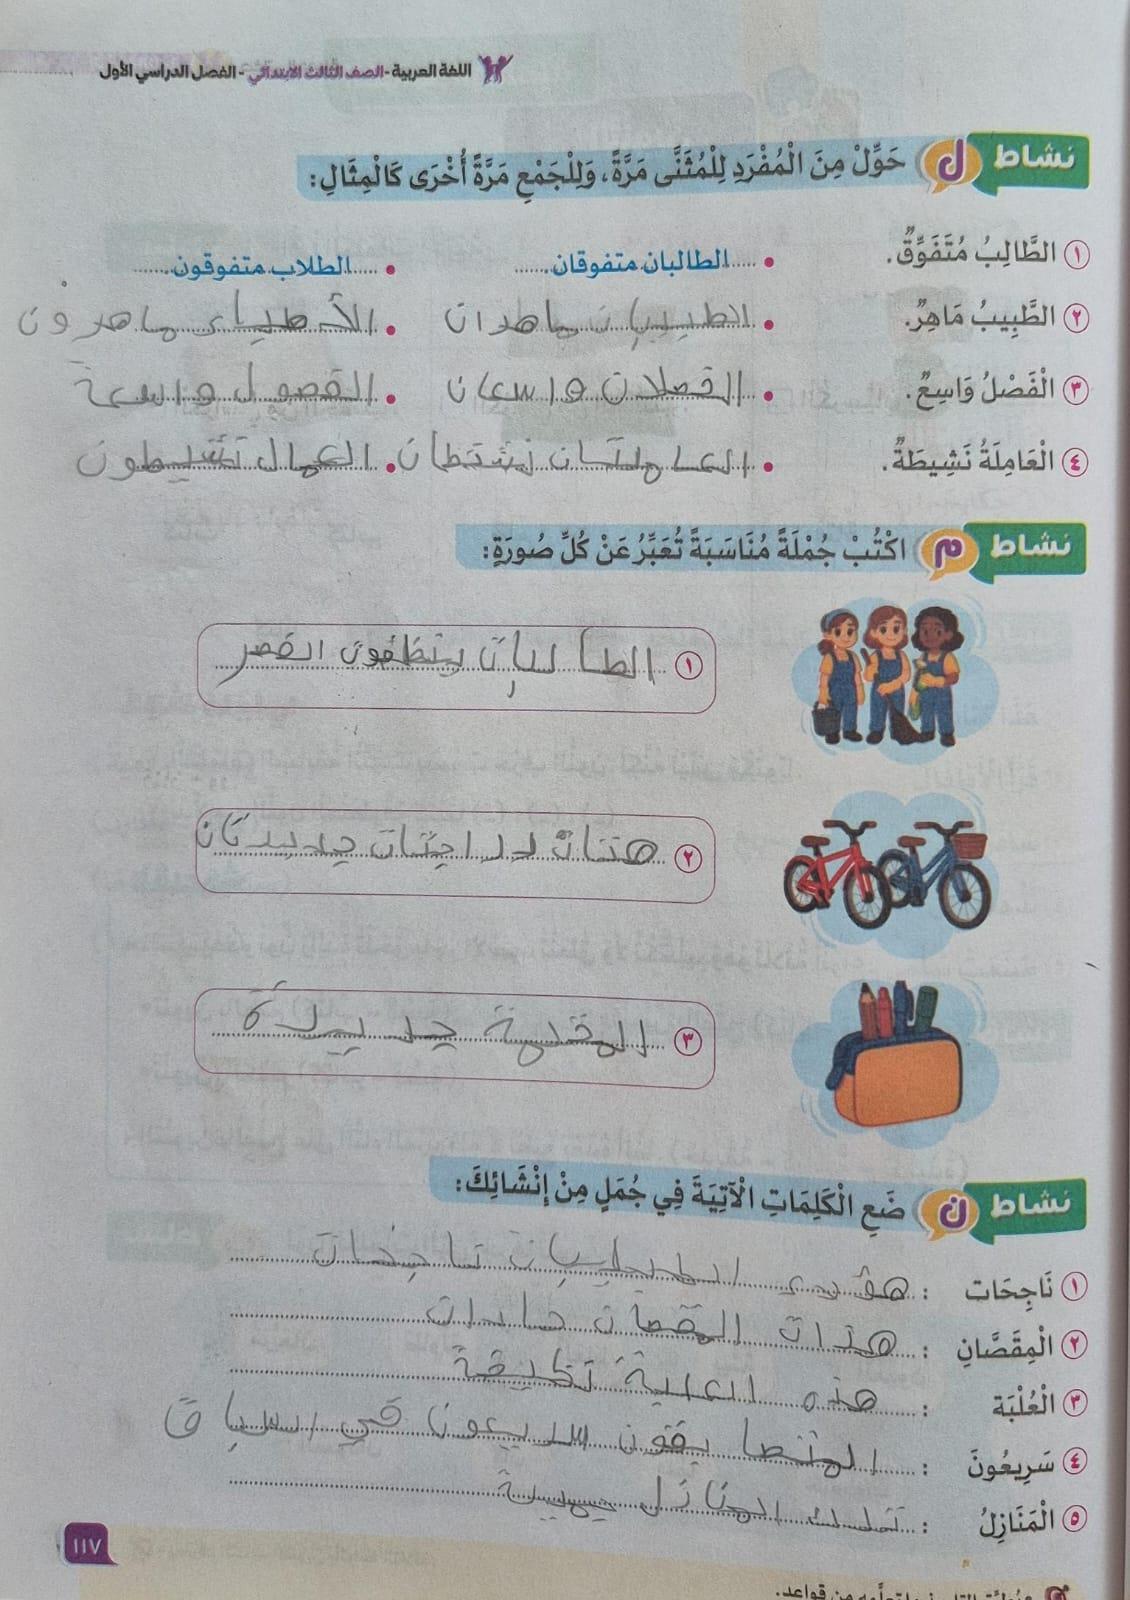 اللغة العربية - الصف الثالث الابتدائي - الفصل الدراسي الأول
نشاط ل حَوِّلْ مِنَ الْمُفْرَدِ لِلْمُثَنَّى مَرَّةً، وَلِلْجَمْعِ مَرَّةً أُخْرَى كَالْمِثَالِ:
١ الطَّالِبُ مُتَفَوِّقٌ. • الطالبان متفوقان • الطلاب متفوقون
٢ الطَّبِيبُ مَاهِرٌ. • الطبيبان ماهران • الأطباء ماهرون
٣ الْفَصْلُ وَاسِعٌ. • الفصلان واسعان • الفصول واسعة
٤ الْعَامِلَةُ نَشِيطَةٌ. • العاملتان نشتطان • العمال نشيطون
نشاط م اكْتُبْ جُمْلَةً مُنَاسَبَةً تُعَبِّرُ عَنْ كُلِّ صُورَةٍ:
١ الطالبات ينظفون
٢ دراجتان جديدتان
٣ المقلمة جديدة
نشاط ن ضَعِ الْكَلِمَاتِ الْآتِيَةَ فِي جُمَلٍ مِنْ إِنْشَائِكَ:
١ نَاجِحَات : ناجحات
٢ الْمِقَصَّانِ : هذان المقصان حادان
٣ الْعُلْبَة : هذه العلبة نظيفة
٤ سَرِيعُونَ : سريعون في
٥ الْمَنَازِلُ : المنازل
١١٧